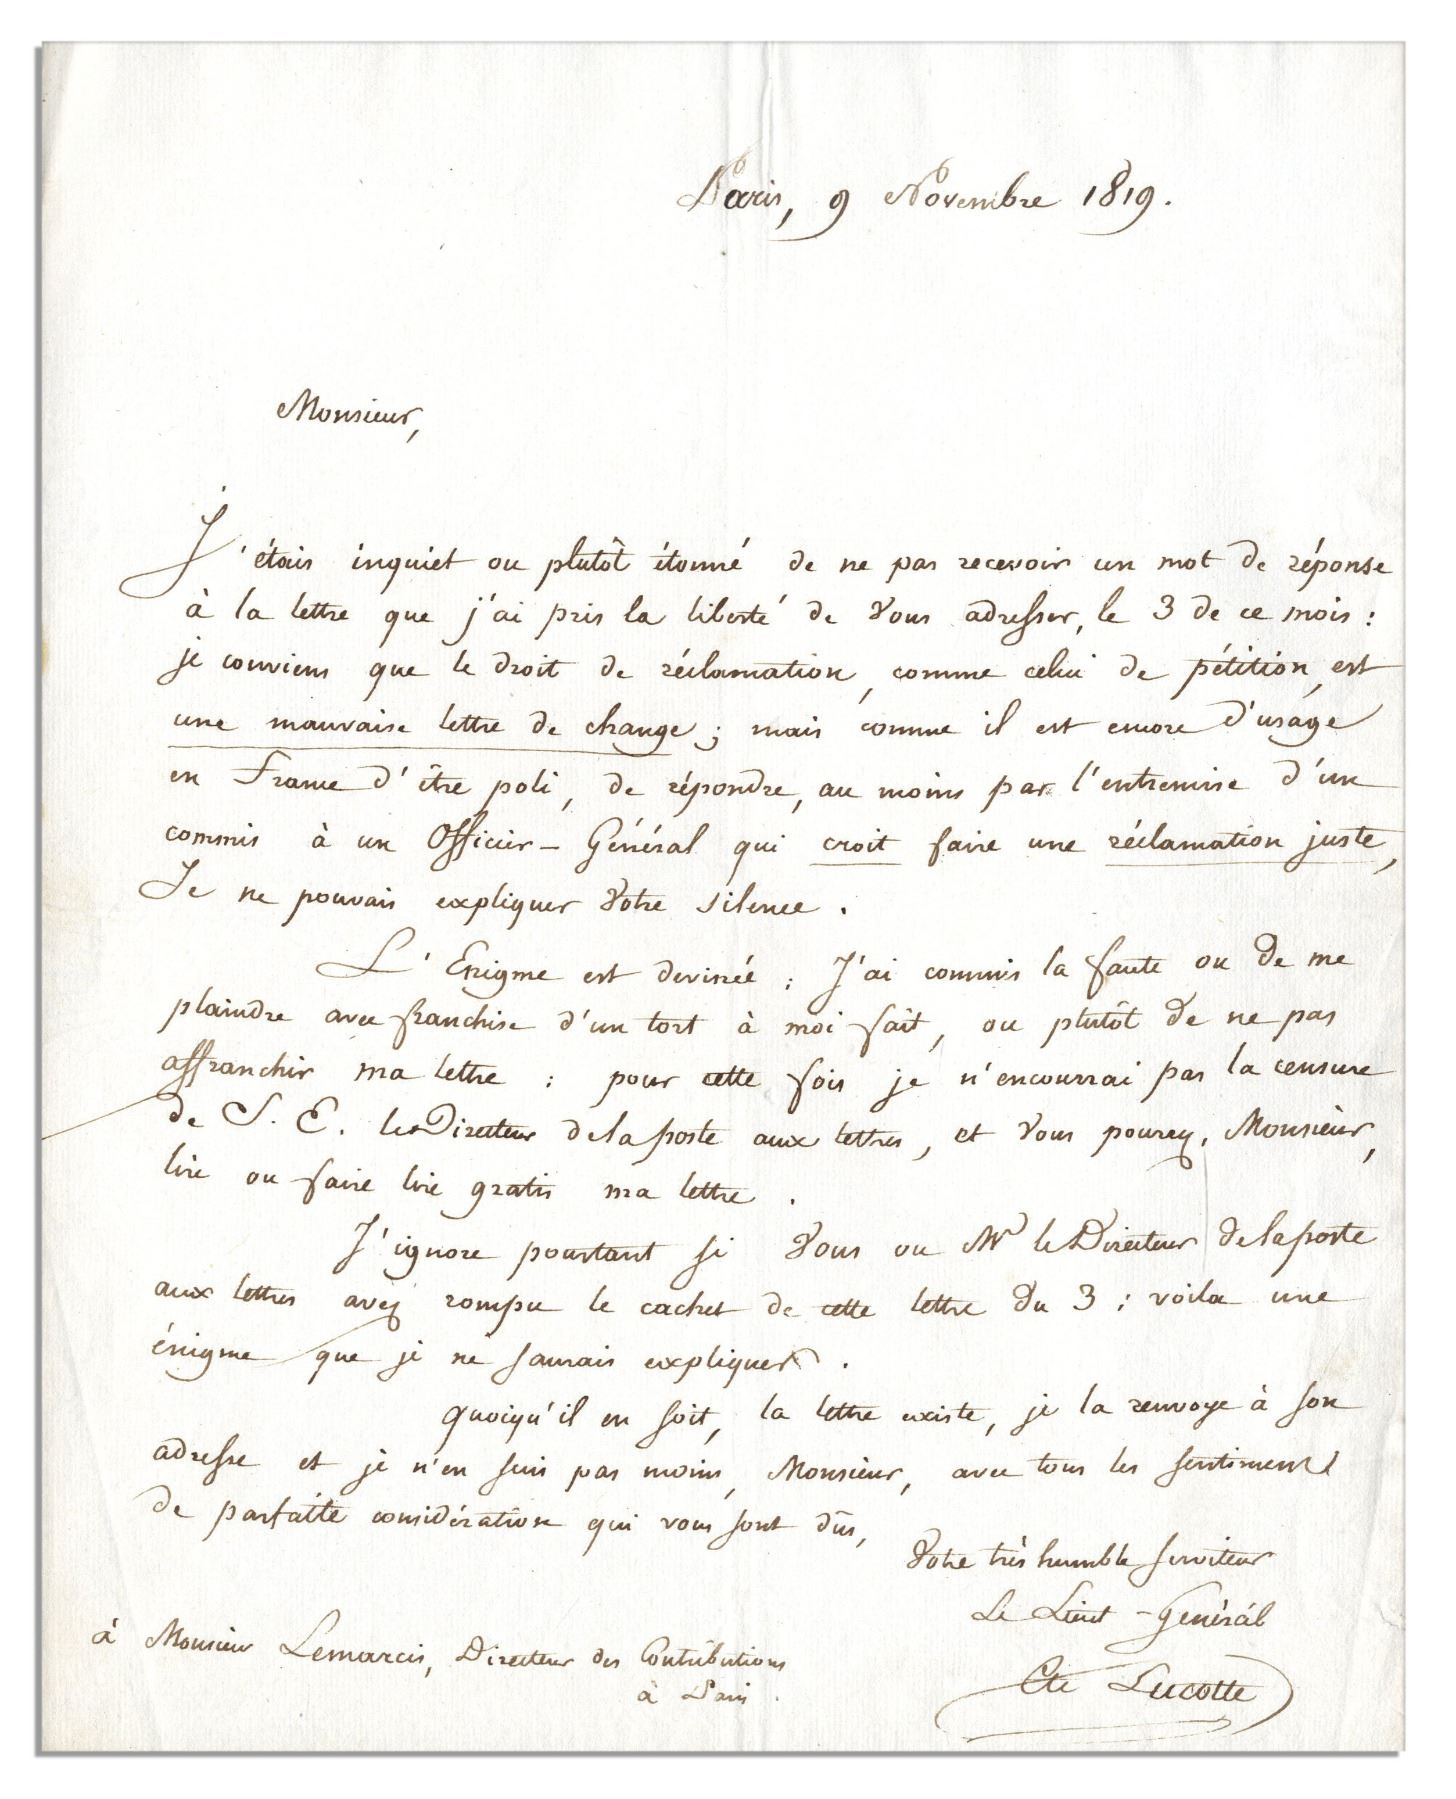 Paris, 9 Novembre 1819.
Monsieur,
J'étais inquiet ou plutôt étonné de ne pas recevoir un mot de réponse
à la lettre que j'ai pris la liberté de Vous adresser, le 3 de ce mois :
je conviens que le droit de réclamation, comme celui de pétition, est
une mauvaise lettre de change ; mais comme il est encore d'usage
en France d'être poli, de répondre, au moins par l'entremise d'un
commis à un Officier-Général qui croit faire une réclamation juste,
Je ne pouvais expliquer Votre silence.
L'Enigme est devinée : J'ai commis la faute ou de me
plaindre avec franchise d'un tort à moi fait, ou plutôt de ne pas
affranchir ma lettre : pour cette fois je n'encourrai pas la censure
de S. E. le Directeur de la poste aux lettres, et Vous pourez, Monsieur,
lire ou faire lire gratis ma lettre.
J'ignore pourtant si Vous ou Mr le Directeur de la poste
aux lettres avez rompu le cachet de cette lettre du 3 ; voila une
énigme que je ne saurais expliquer.
Quoiqu'il en soit, la lettre existe, je la renvoye à son
adresse et je n'en suis pas moins, Monsieur, avec tous les sentiments
de parfaite considération qui vous sont dûs,
Votre très humble serviteur
Le Lieut-Général
Cte Lucotte
à Monsieur Lemarcis, Directeur des Contributions
à Paris.